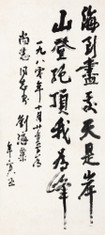 海到盡头天是岸
山登絕頂我為峰
一九八〇年十月廿
尚志同志 劉海粟
年方八五